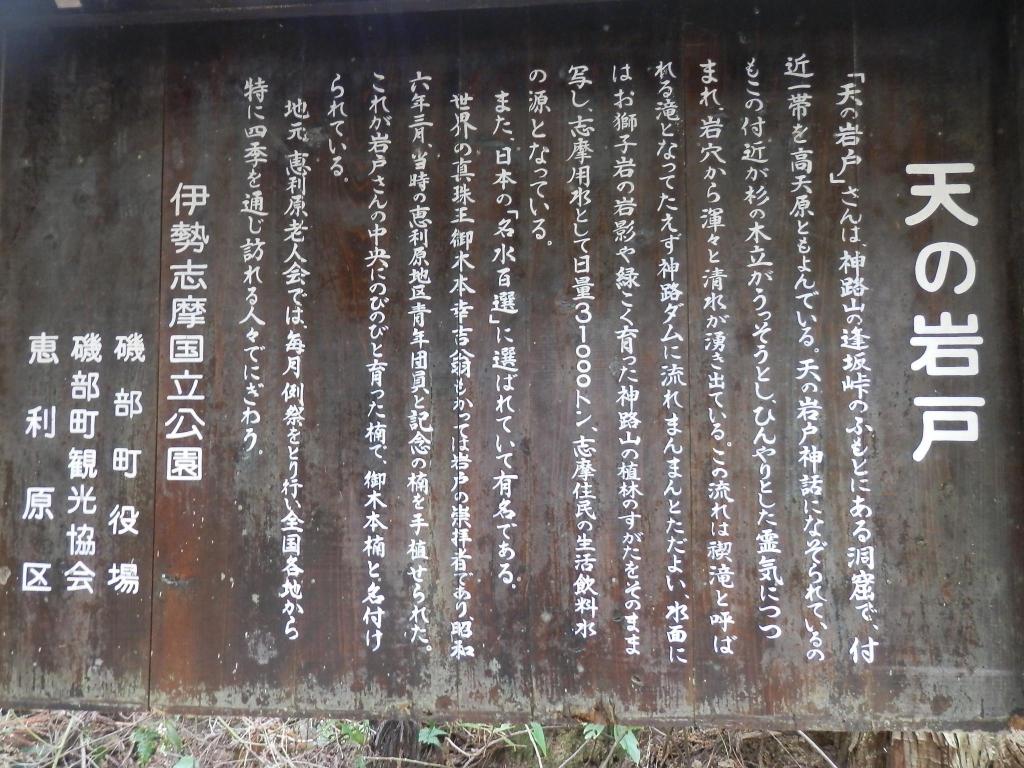 天の岩戸
「天の岩戸」さんは、神路山の逢坂峠のふもとにある洞窟で、付
近一帯を高天原ともよんでいる。天の岩戸神話になぞられているの
もこの付近が杉の木立がうっそうとし、ひんやりとした霊気につつ
まれ、岩穴から渾々と清水が湧き出ている。この流れは禊滝と呼ば
れる滝となってたえず神路ダムに流れまんまんとたたよい、水面に
はお獅子岩の岩影や緑こく育った神路山の植林のすがたをそのまま
写し、志摩用水として日量31000トン、志摩住民の生活飲料水
の源となっている。
また、日本の「名水百選」に選ばれていて有名である。
世界の真珠王御木本幸吉翁もかっては岩戸の崇拝者であり昭和
六年三月、当時の恵利原地区青年団員と記念の楠を手植せられた。
これが岩戸さんの中央にのびのびと育った楠で、御木本楠と名付け
られている。
地元、恵利原老人会では、毎月例祭をとり行い全国各地から
特に四季を通じ訪れる人々でにぎわう。
伊勢志摩国立公園
磯部町役場
磯部町観光協会
恵利原区